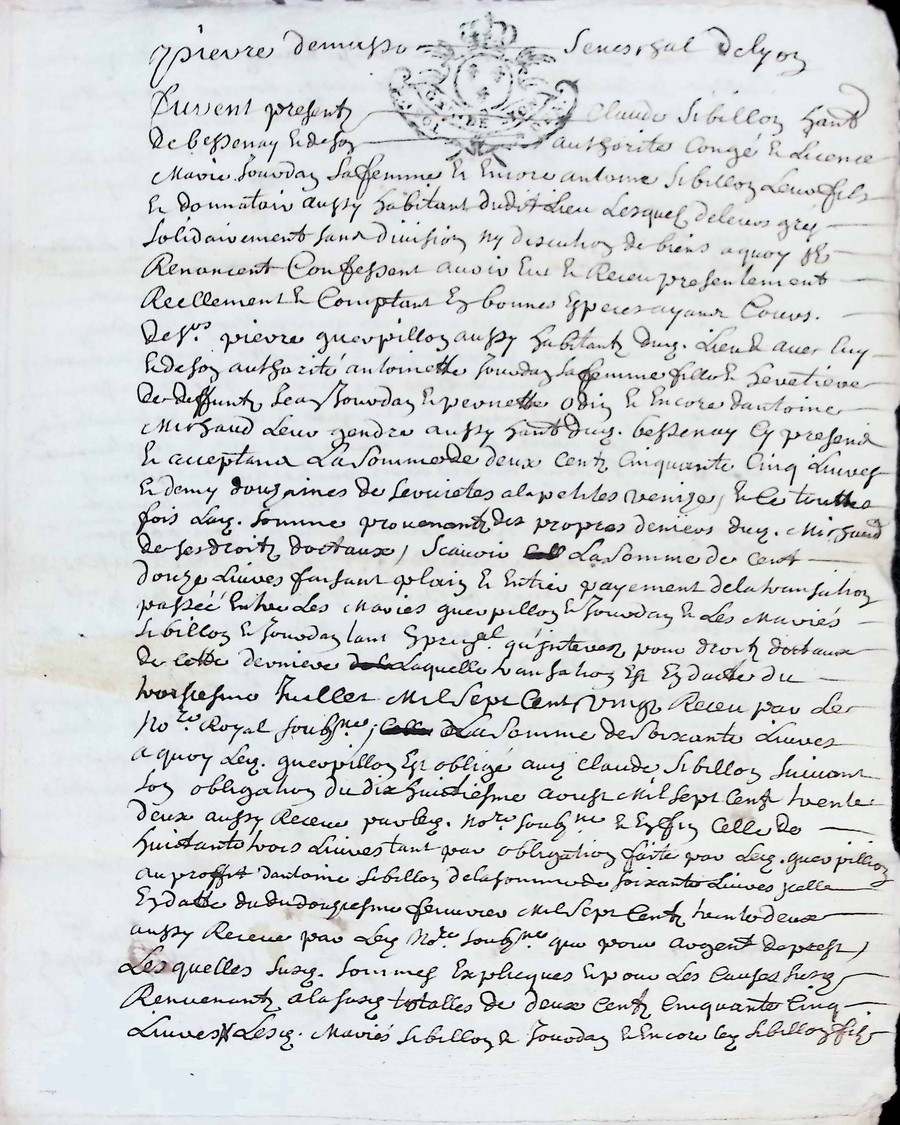 pierre demasso Seneschal de lyon
Furent presentz Claude Sibillon habt
de bessenay et de son authorité Congé et Licence
Marie Jourdan sa femme et Encore antoine Sibillon Leur fils
Et donnatair aussy habitant dudit Lieu Lesquels de leurs gres
Solidairement sans division ny discution de biens a quoy ils
Renoncent Confessent avoir Eut et Receu presentement
Reellement et Comptant En bonnes Especes ayant Cours.
de sr. pierre guerpillon aussy habitant dud. Lieu et avec luy
et de son authorité antoinette Jourdan sa femme fille et heretiere
de deffuntz Jean Jourdan et pernette odin et Encore d'antoine
Michaud Leur gendre aussy habt dud. bessenay Cy present
Et acceptant La somme de deux Centz Cinquante Cinq Livres
Et demy douzaines de serviettes a la petites venize, Et Ce touttes
fois Lad. somme provenantz des propres deniers dud. Michaud
de ses droitz dottaux, Scavoir La somme de Cent
douze Livres faisant plain et Entier payement de la transaction
passéé Entre Les Mariés guerpillon et Jourdan et Les Mariés
Sibillon et Jourdan tant En principal qu'interez pour droitz dottaux
de cette derniere Laquelle transaction Est En datte du
troisiesme Juillet Mil Sept Cent vingt Receu par Le
Nore Royal soubsne, La somme de soixante Livres
a quoy Led. guerpillon Est obligé aud. Claude Sibillon suivant
son obligation du dix huictiesme aoust Mil sept Centz trente
deux aussy Receue par led. Nore soubsne et Enfin Celle de
huictante trois Livres tant par obligation faite par Led. guerpillion
au proffit d'antoine Sibillon de la somme de soixante Livres icelle
En datte du du douziesme fevrier Mil Sept Centz trente deux
aussy Receue par Led. Nore soubsne que pour argent de prest,
Les quelles susd. sommes Expliquees Et pour Les Causes susd.
Revenantz a la susd. totalles de deux Centz Cinquante Cinq
Livres Lesd. Mariés Sibillon et Jourdan et Encore led. Sibillon fils